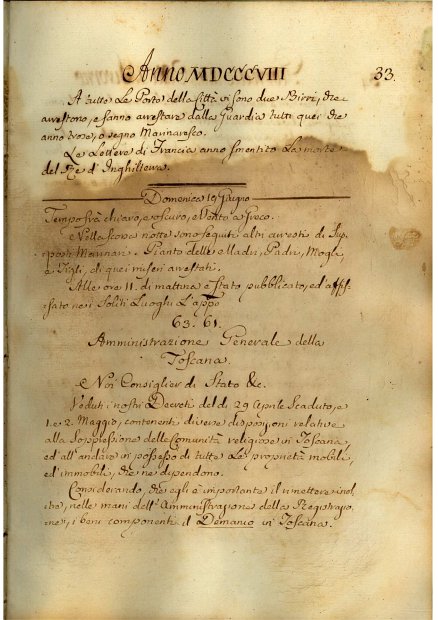 Anno MDCCCVIII
33.
A tutte Le Porte della Città vi sono due Birri, che
arrestono, e fanno arrestare dalla Guardia tutti quei che
anno Nove, o segno Marinaresco.
Le Lettere di Francia anno smentito La morte
del Re d'Inghilterra.
Domenica 19 Giugno
Tempo frà chiaro, e oscuro, e Vento a Greco.
Nella scorsa notte sono seguiti altri arresti di Sup-
posti Marinari. Pianto delle Madri, Padri, Mogli,
e Figli, di quei miseri arrestati.
Alle ore 11. di mattina è stato pubblicato, ed affis-
sato nei Soliti Luoghi L'appo
63. 61.
Amministrazione Generale della
Toscana.
Noi Consiglier di Stato &c.
Veduti i nostri Decreti del dì 29 Aprile Scaduto, e
1. e 2. Maggio, contenenti diverse disposizioni relative
alla Soppressione delle Comunità religiose in Toscana,
ed all'andare in possesso di tutte Le proprietà mobili,
ed immobili, che ne dipendono.
Considerando, che egli è importante il rimettere inol-
tre, nelle mani dell'Amministrazione della Registrazio-
ne, i beni componenti il Demanio in Toscana.